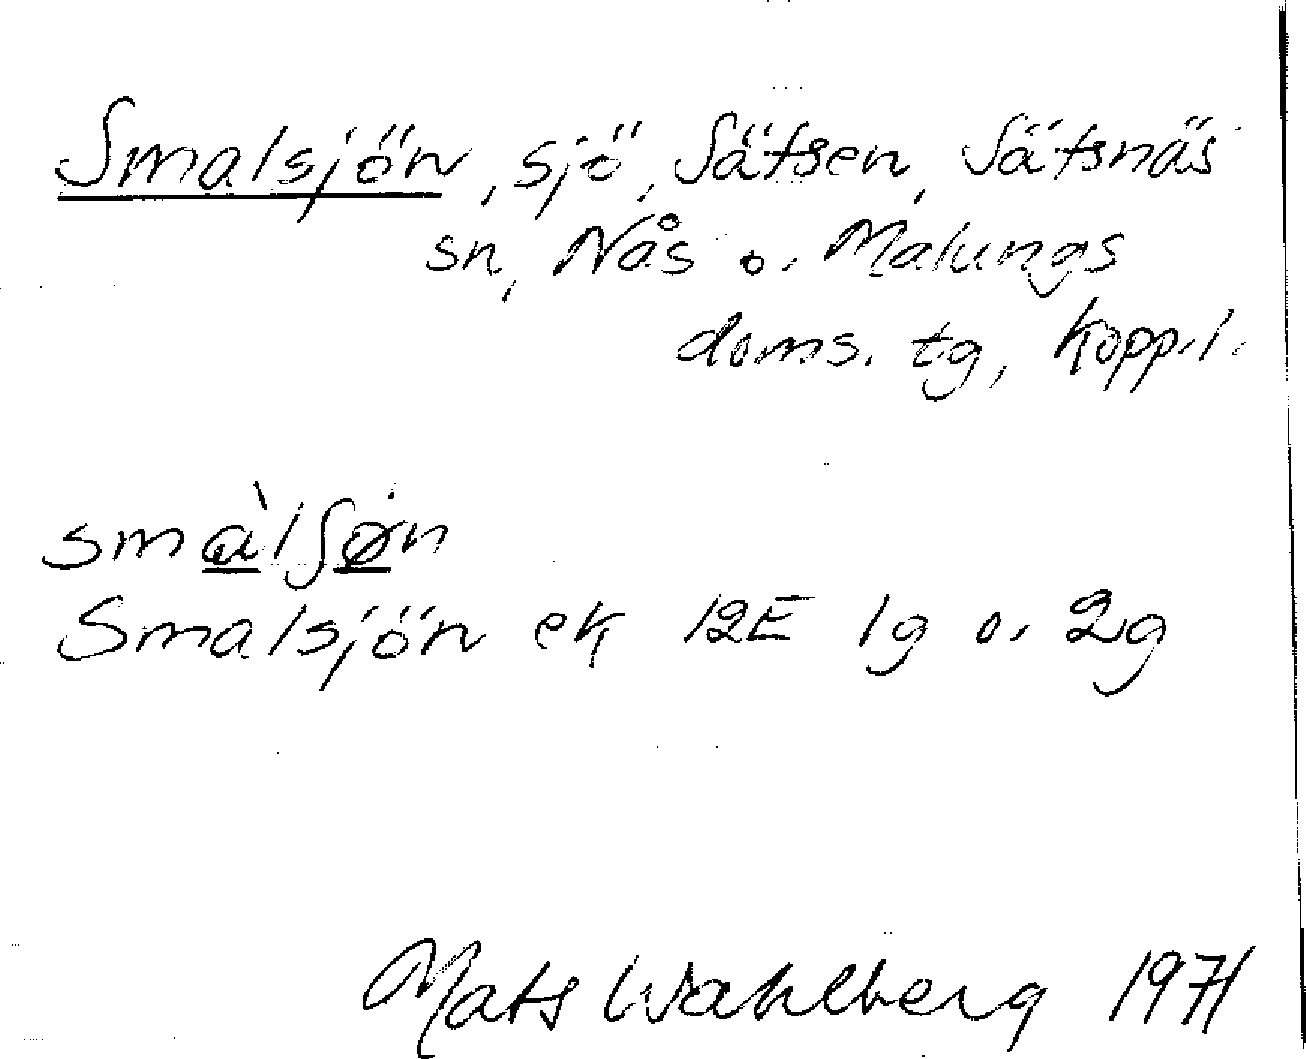 Smalsjön, sjö, Sätsen, Sätsnäs
sn, Nås o. Malungs
doms. tg, Kopp.l.
smàlʃøn
Smalsjön ek 12E 1g o. 2g
Mats Wahlberg 1971